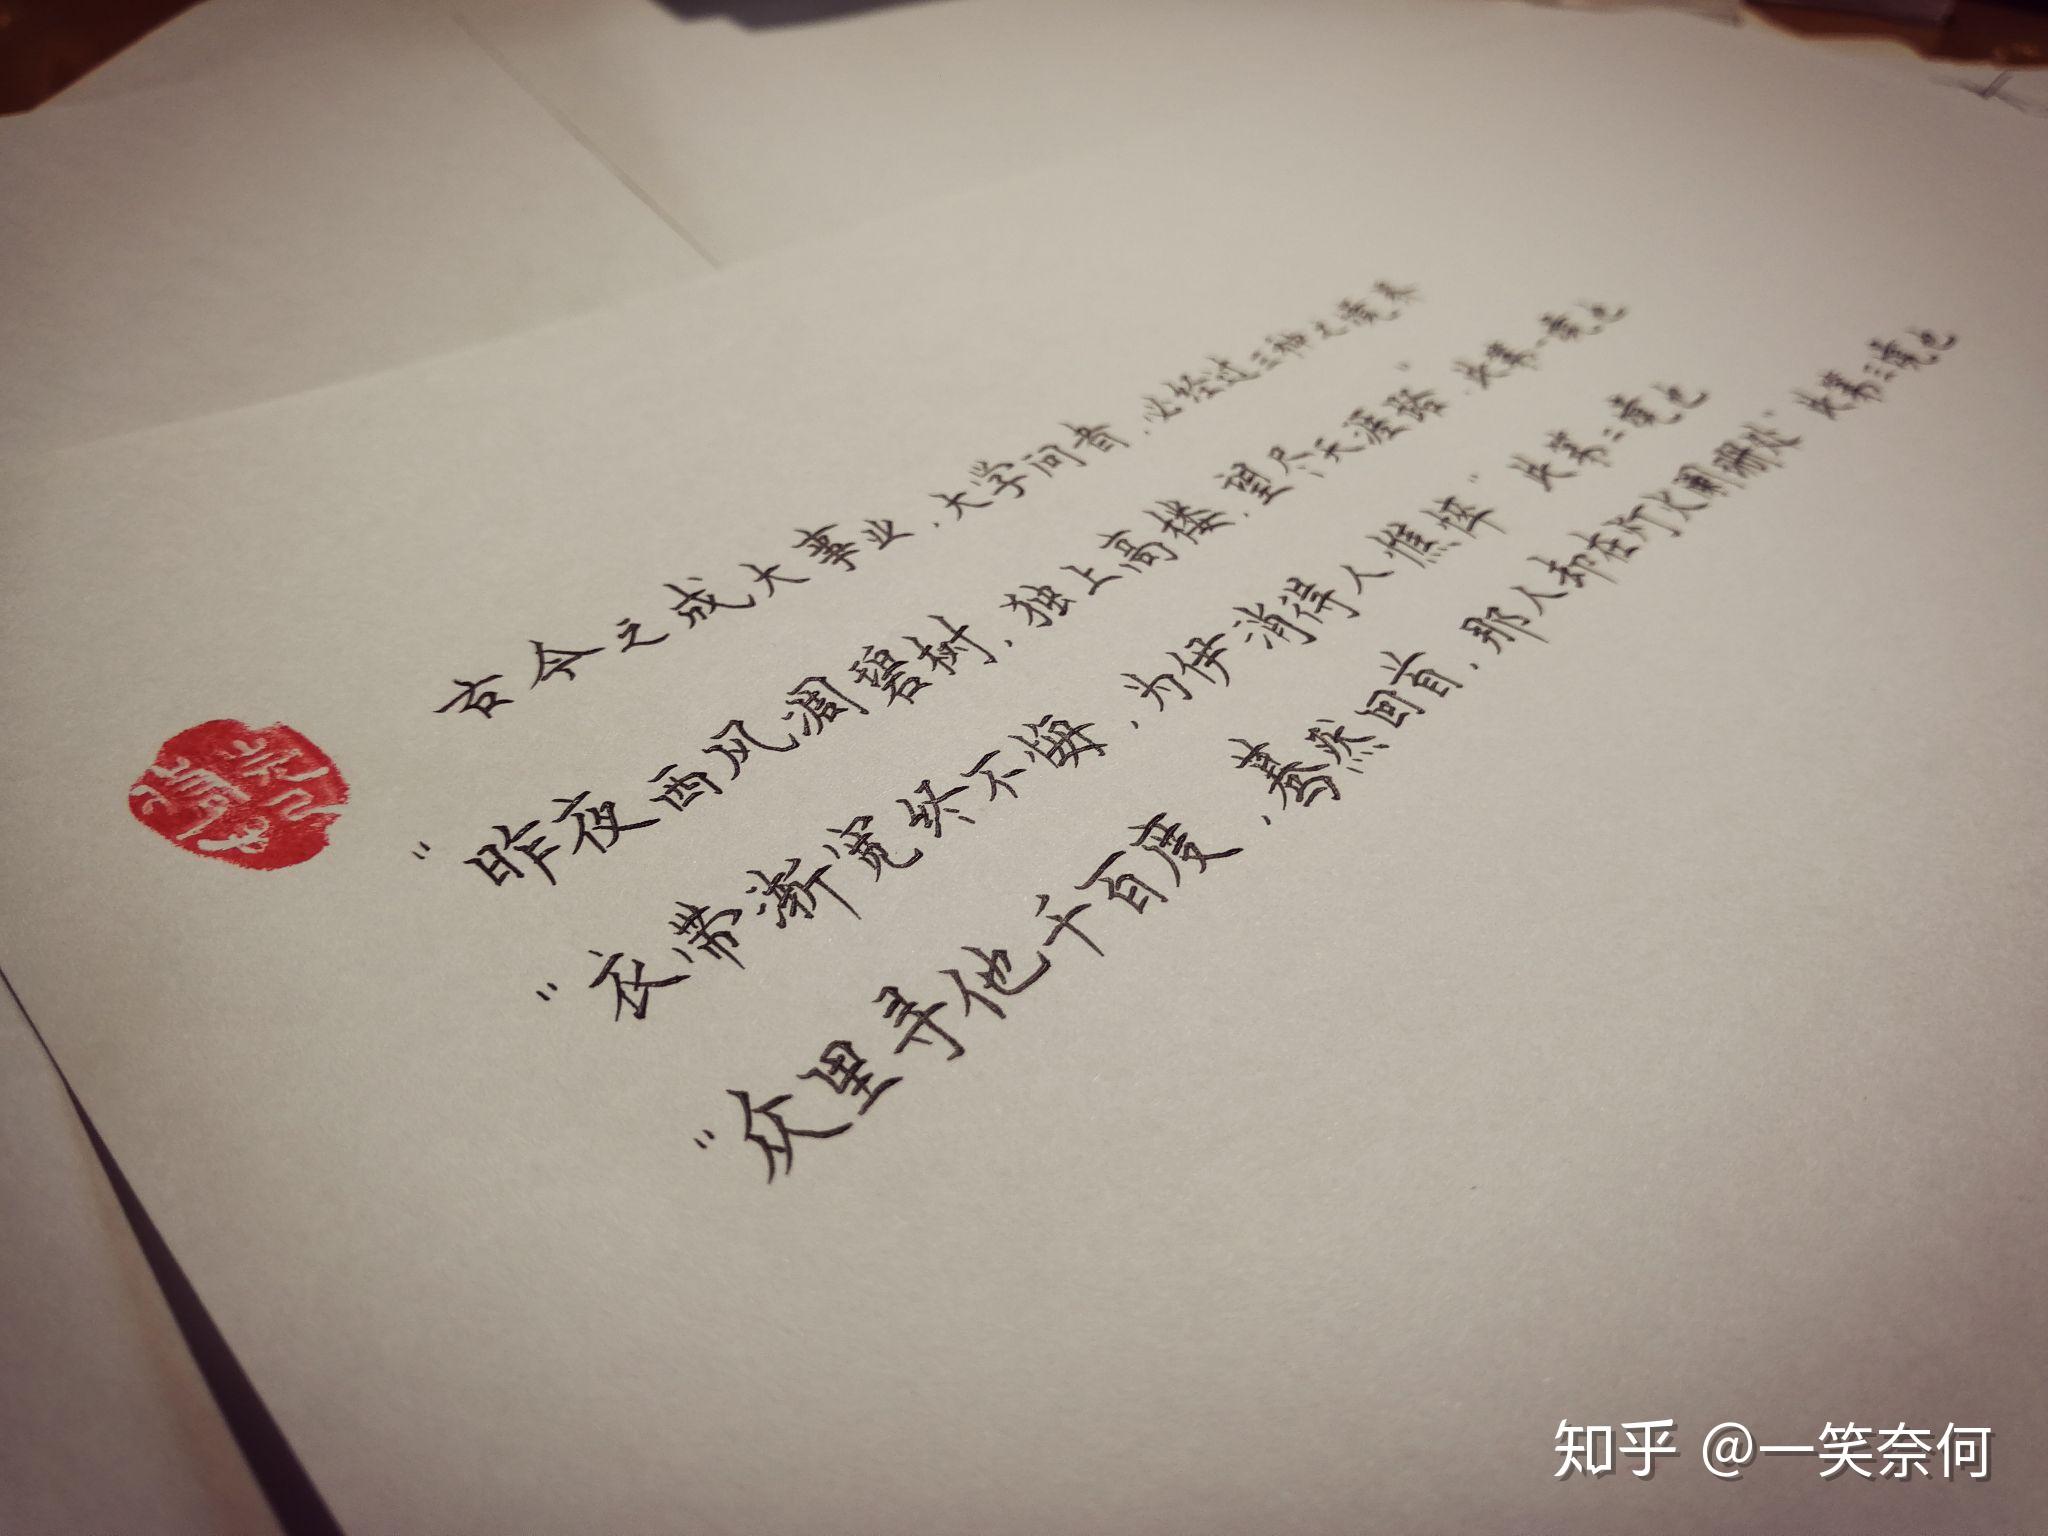 古今之成大事业,大学问者,必经过三种之境界
"昨夜西风凋碧树,独上高楼,望尽天涯路",此第一境也
"衣带渐宽终不悔,为伊消得人憔悴"此第二境也
"众里寻他千百度,蓦然回首,那人却在灯火阑珊处"此第三境也
知乎 @一笑奈何